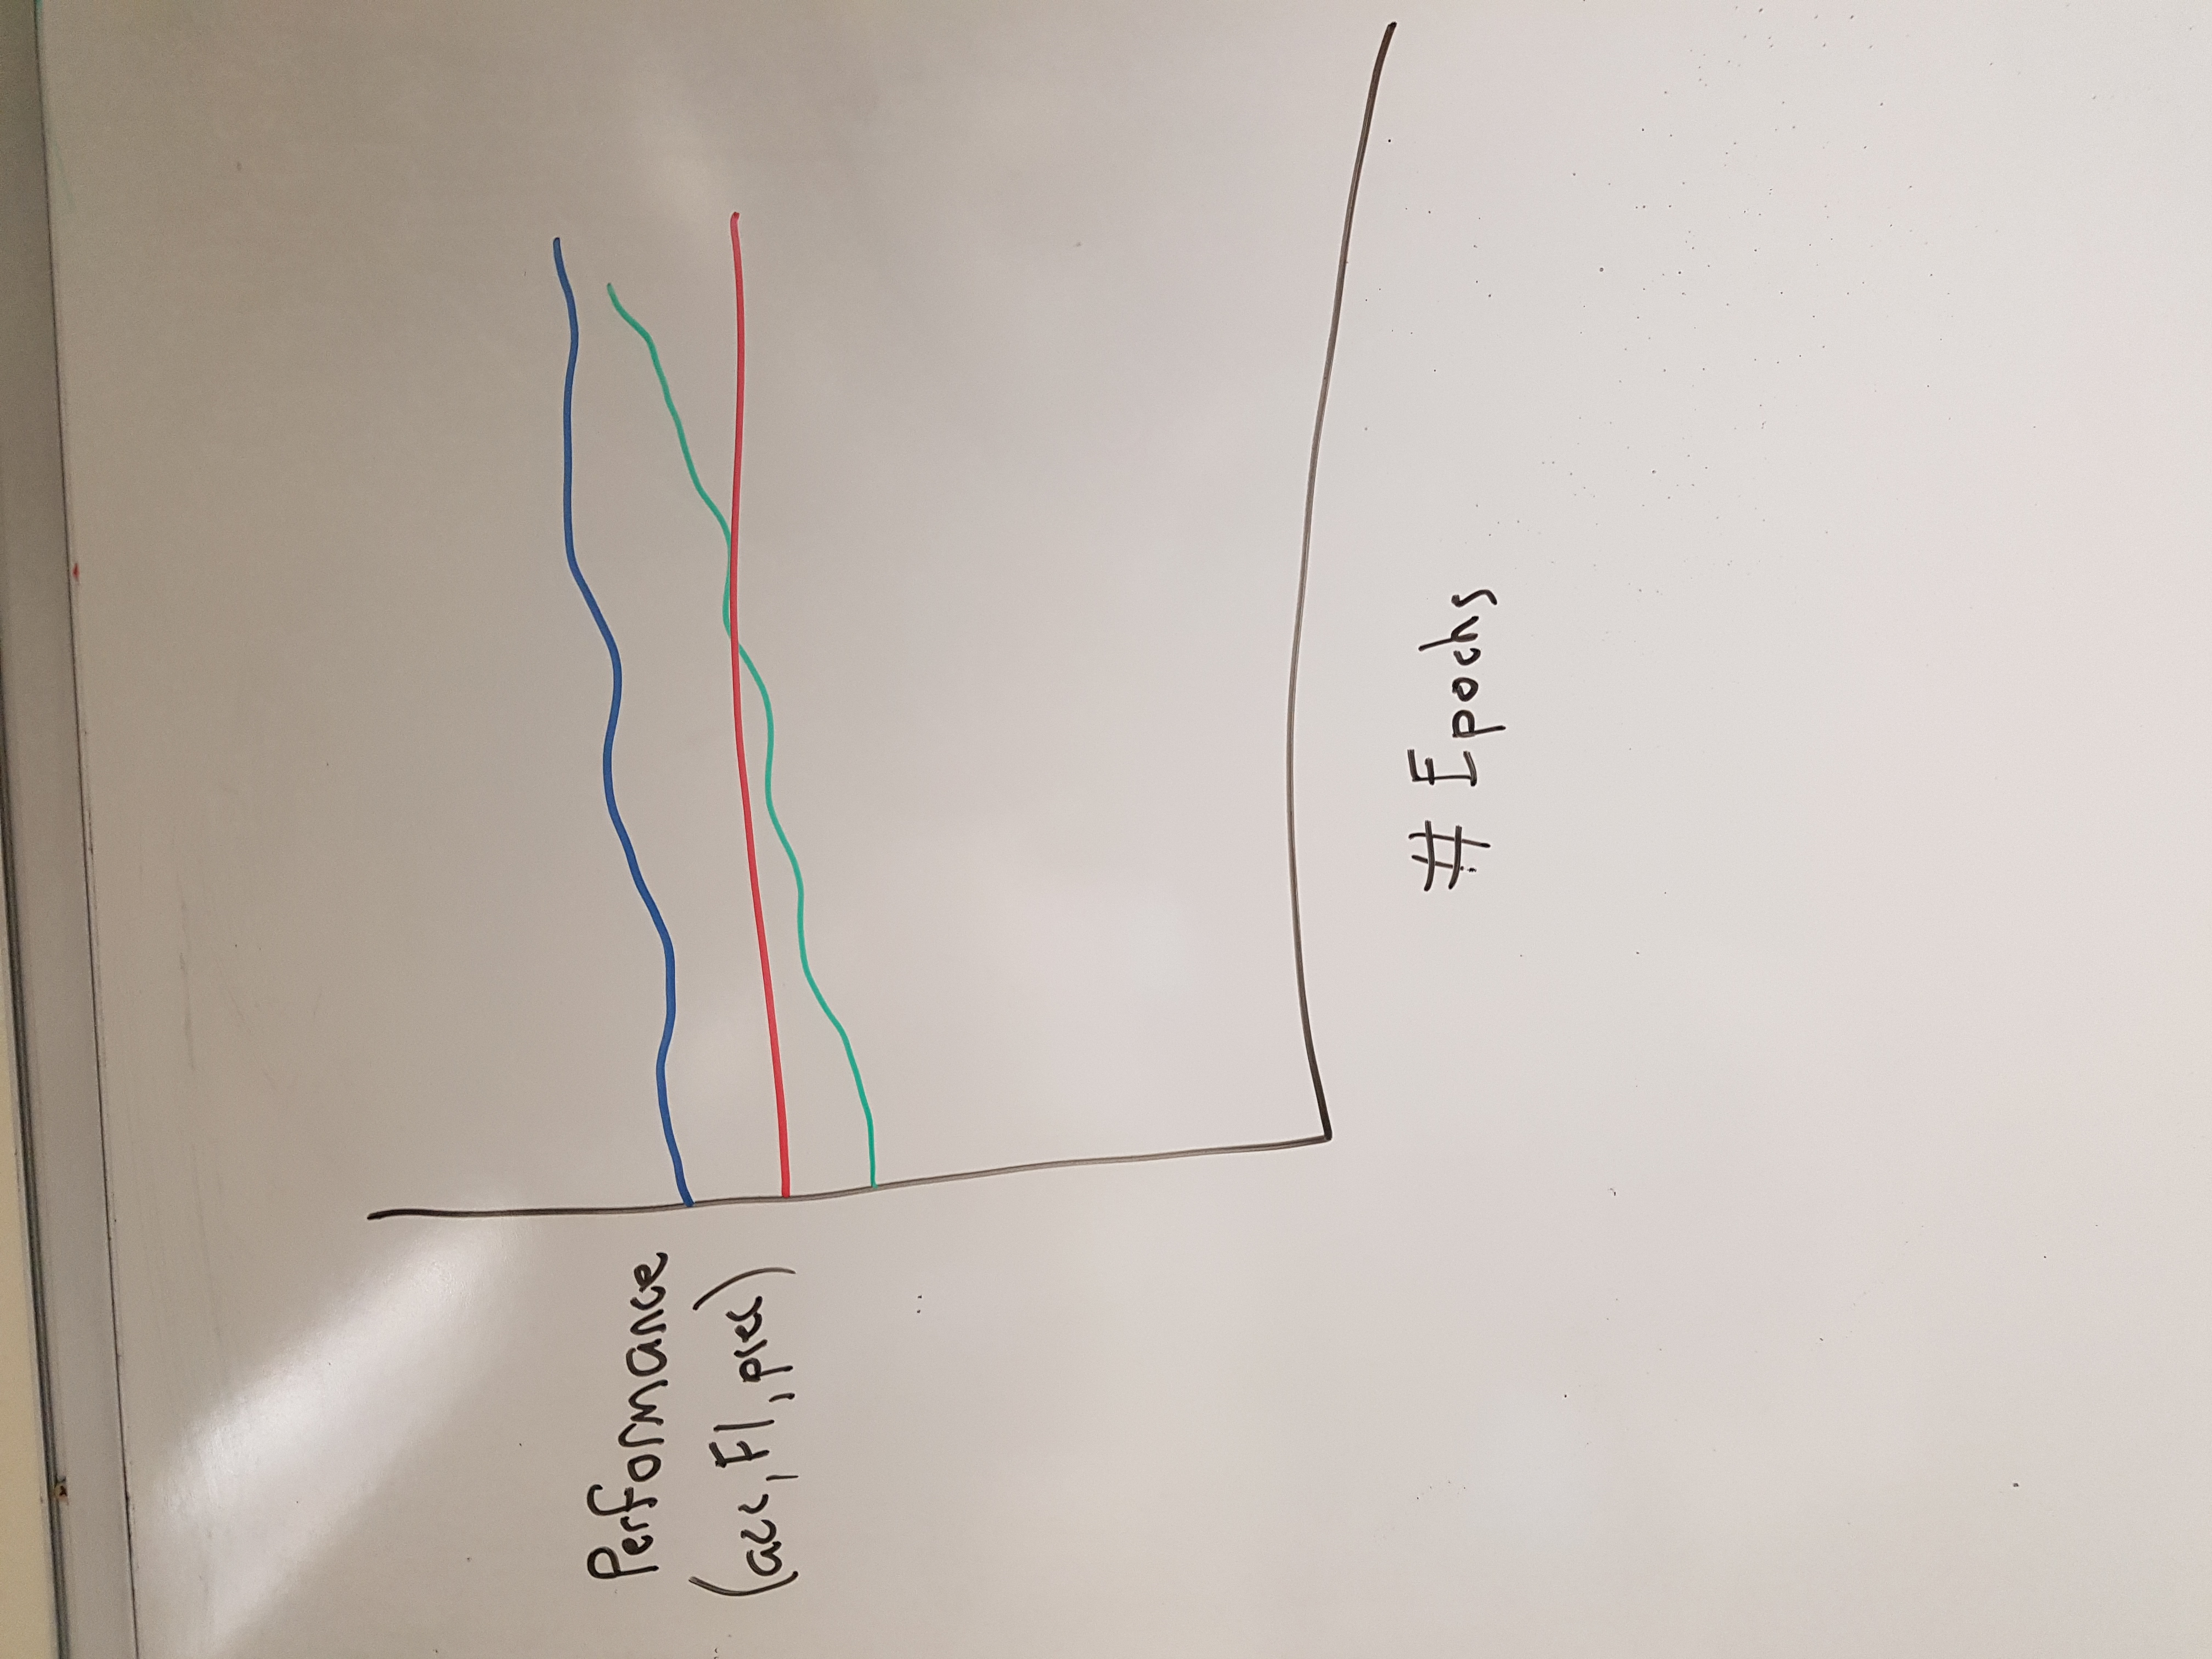 Performance
(acc, F1, prec)
# Epochs